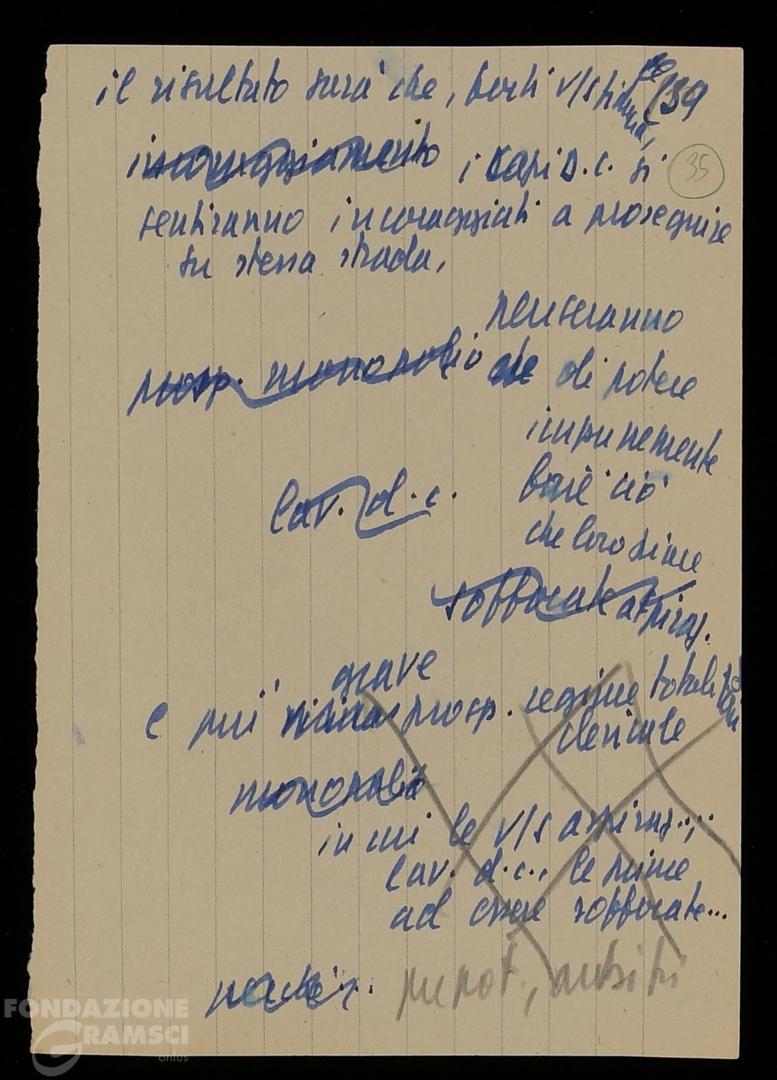 il risultato sarà che, forti v/s fiducia, 139
35
incoraggiamento i capi d.c. si
sentiranno incoraggiati a proseguire
su stessa strada,
penseranno
prosp. monopolio che di potere
impunemente
lav. d.c. fare ciò
che loro piace
soffocate aspiraz.
grave
e più vicina prosp. regime totalitario
clericale
monopolio
in cui le v/s aspiraz...,
lav. d.c., le prime
ad essere soffocate...
prepot., arbitri
FONDAZIONE
GRAMSCI
onlus